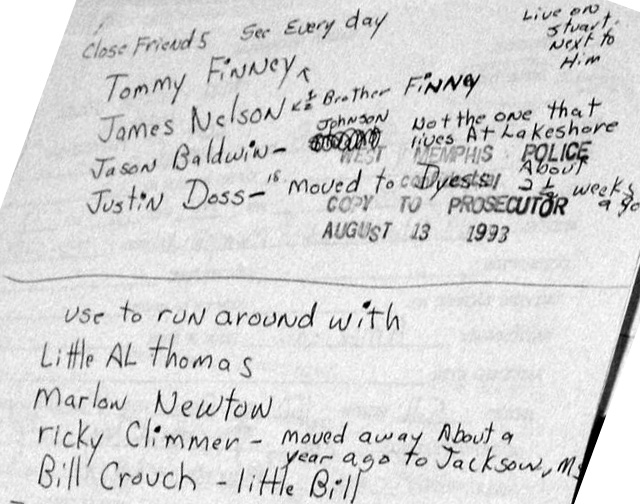 Close Friends See Every day
Live on
Stuart.
Next to
Him
Tommy Finney
James Nelson < 1/2 Brother Finney
Jason Baldwin - Johnson Not the one that
lives At Lakeshore
Justin Doss - is moved to Dyess About
2 1/2 weeks
ago
WEST MEMPHIS POLICE
COPY TO PROSECUTOR
AUGUST 13 1993
use to run around with
Little AL Thomas
Marlow Newton
ricky Climmer - moved away About a
year ago to Jackson, Ms
Bill Crouch - little Bill